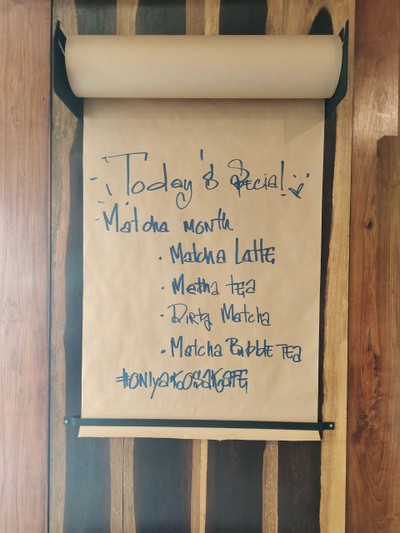 Today's Special!
Matcha month
· Matcha Latte
· Matcha tea
· Dirty Matcha
· Matcha Bubble Tea